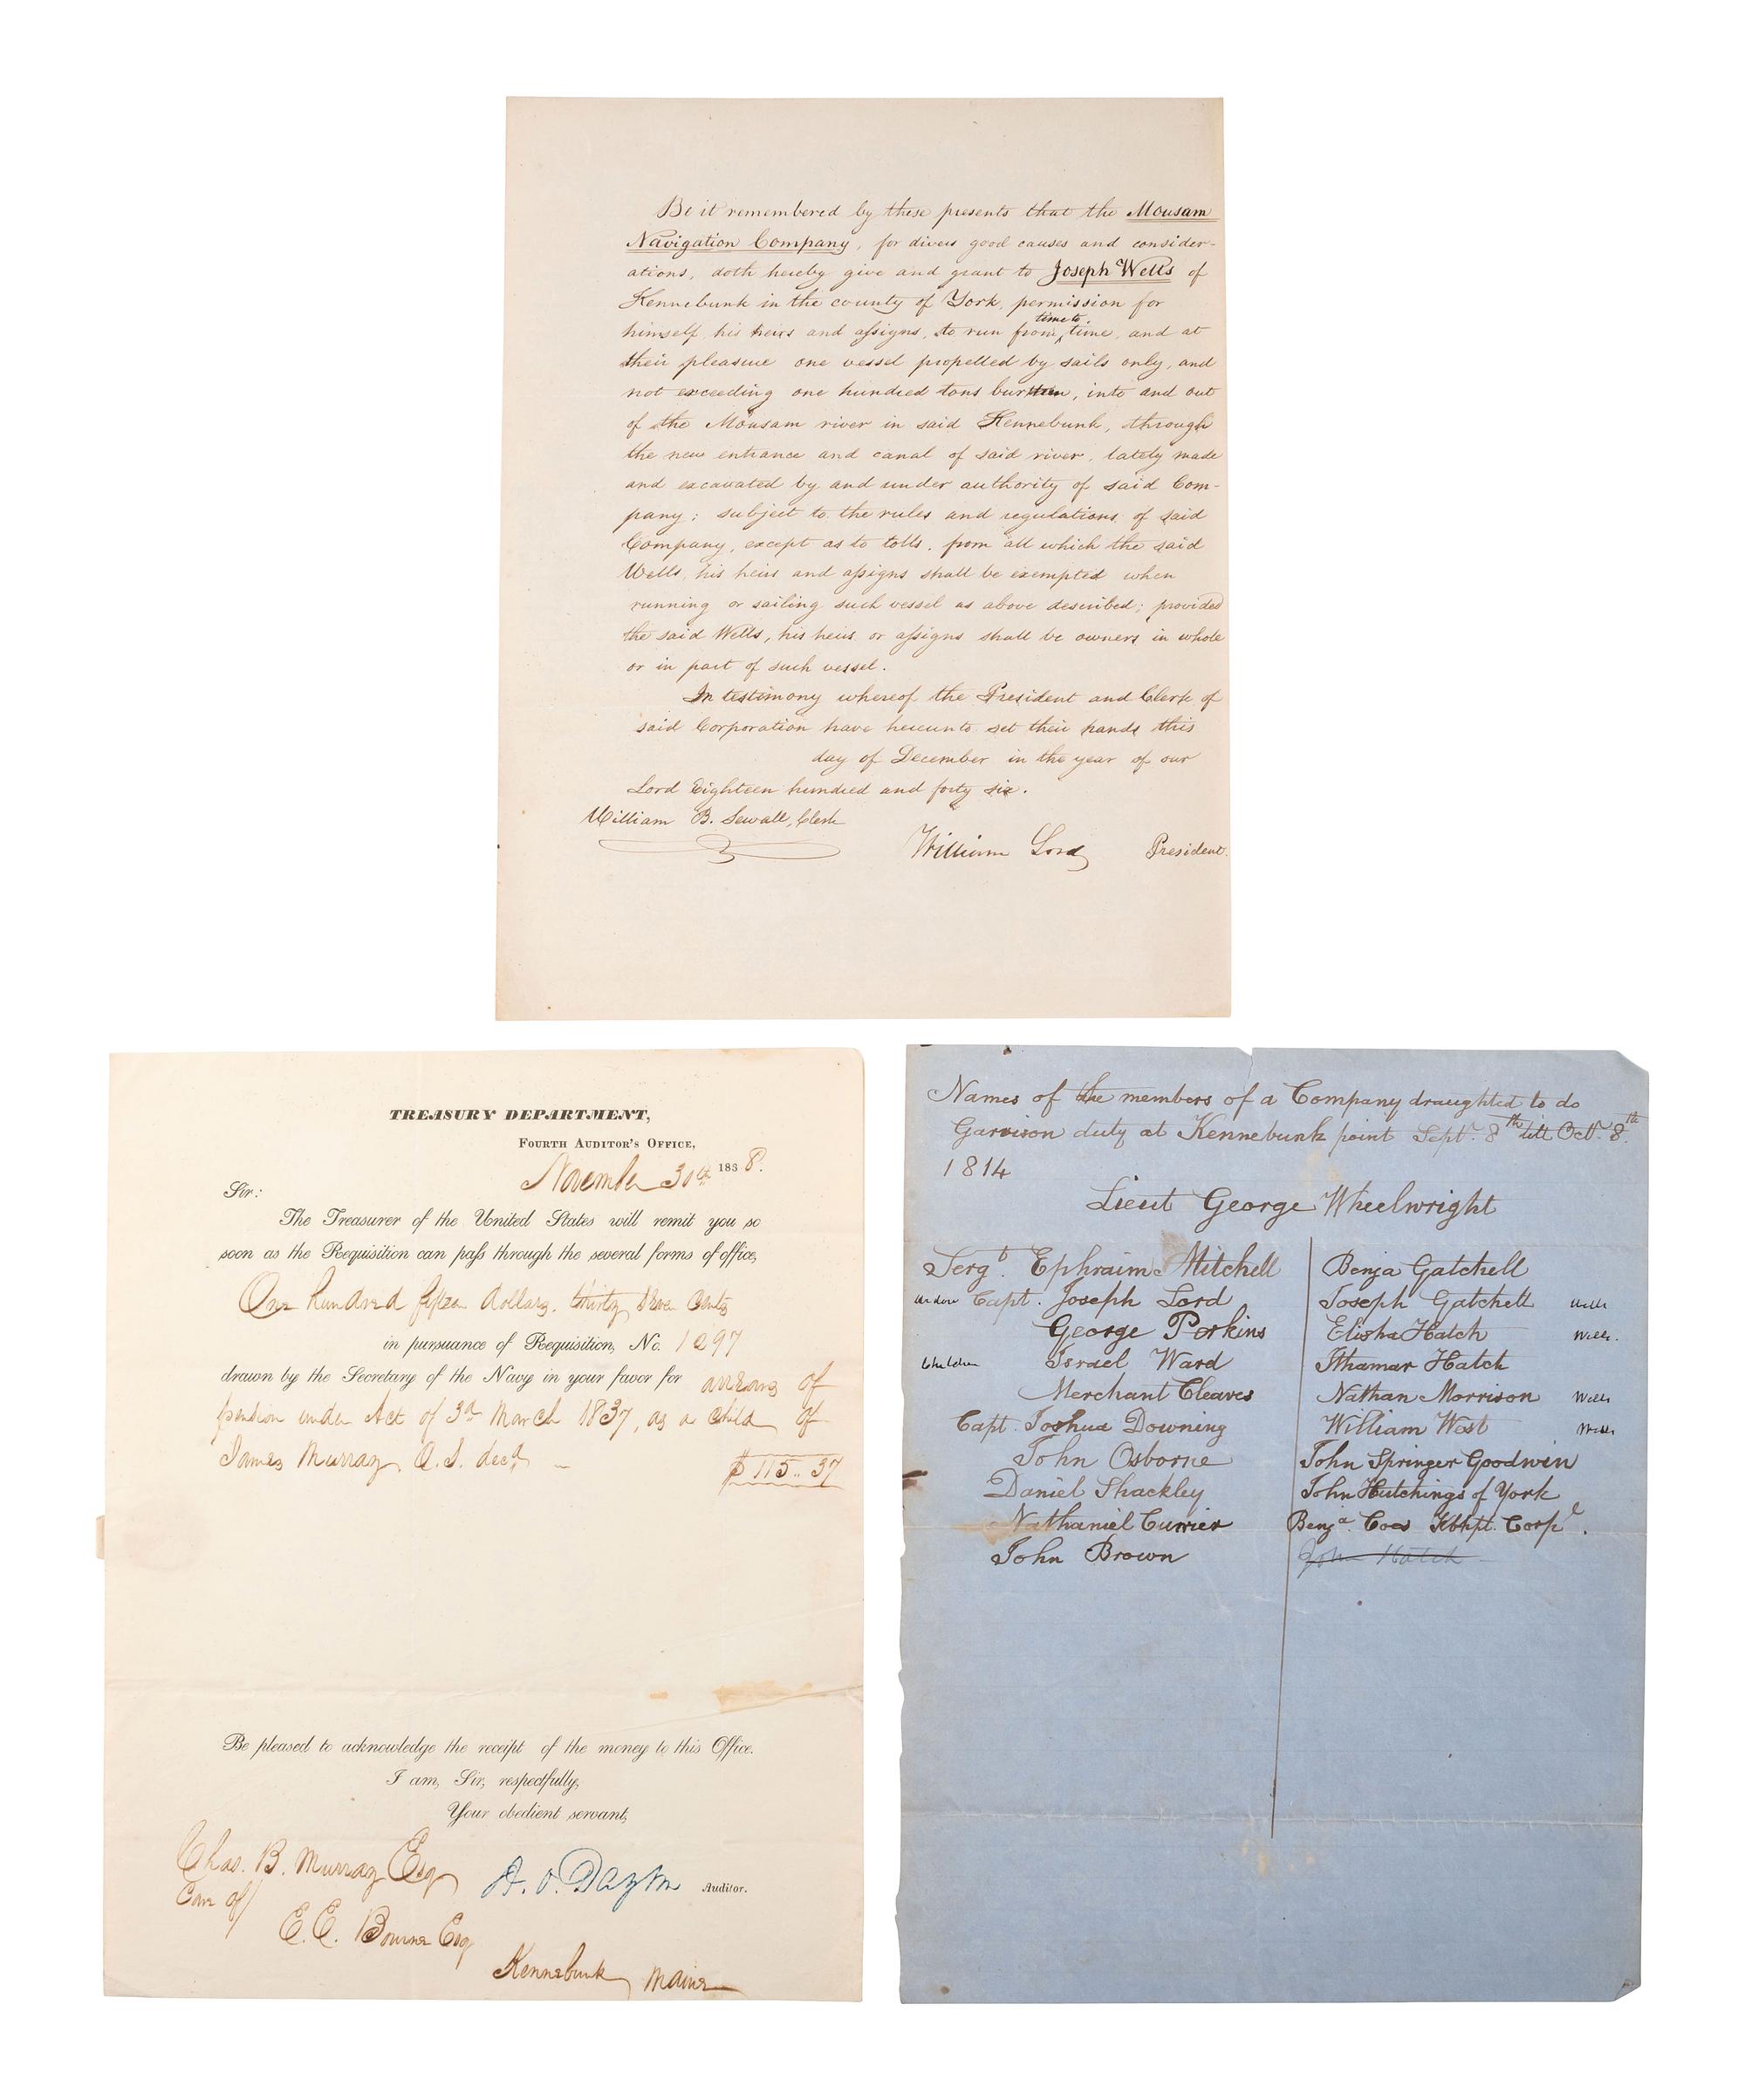 Be it remembered by these presents that the Mousam
Navigation Company, for divers good causes and consider-
ations, doth hereby give and grant to Joseph Wells of
Kennebunk in the county of York, permission for
himself, his heirs and assigns, to run from time to time, and at
their pleasure one vessel propelled by sails only, and
not exceeding one hundred tons burthen, into and out
of the Mousam river in said Kennebunk, through
the new entrance and canal of said river, lately made
and excavated by and under authority of said Com-
pany; subject to the rules and regulations of said
Company, except as to tolls, from all which the said
Wells, his heirs and assigns shall be exempted when
running or sailing such vessel as above described; provided
the said Wells, his heirs or assigns shall be owners in whole
or in part of such vessel.
In testimony whereof the President and Clerk of
said Corporation have hereunto set their hands this
day of December in the year of our
Lord Eighteen hundred and forty six.
William B. Sewall, Clerk
William Lord President.
TREASURY DEPARTMENT,
FOURTH AUDITOR'S OFFICE,
November 30th 1838.
Sir:
The Treasurer of the United States will remit you so
soon as the Requisition can pass through the several forms of office,
One hundred fifteen dollars, thirty seven Cents
in pursuance of Requisition, No. 1297
drawn by the Secretary of the Navy in your favor for arrears of
pension under Act of 3d March 1837, as a child of
James Murray, Q. S. decd.
$115..37
Be pleased to acknowledge the receipt of the money to this Office.
I am, Sir, respectfully,
Your obedient servant,
Chas. B. Murray Esq
A. O. Dayton Auditor.
Care of
E. E. Bourne Esq
Kennebunk Maine
Names of the members of a Company draughted to do
Garrison duty at Kennebunk point Sept. 8th till Oct. 8th
1814
Lieut George Wheelwright
Sergt. Ephraim Mitchell
widow Capt. Joseph Lord
George Perkins
Children Israel Ward
Merchant Cleaves
Capt. Joshua Downing
John Osborne
Daniel Shackley
Nathaniel Currier
John Brown
Benja Gatchell
Joseph Gatchell Wells
Elisha Hatch Wells.
Ithamar Hatch
Nathan Morrison Wells
William West Wells
John Springer Goodwin
John Hutchings of York
Benja. Coes Kbkpt. Corpl.
John Hatch